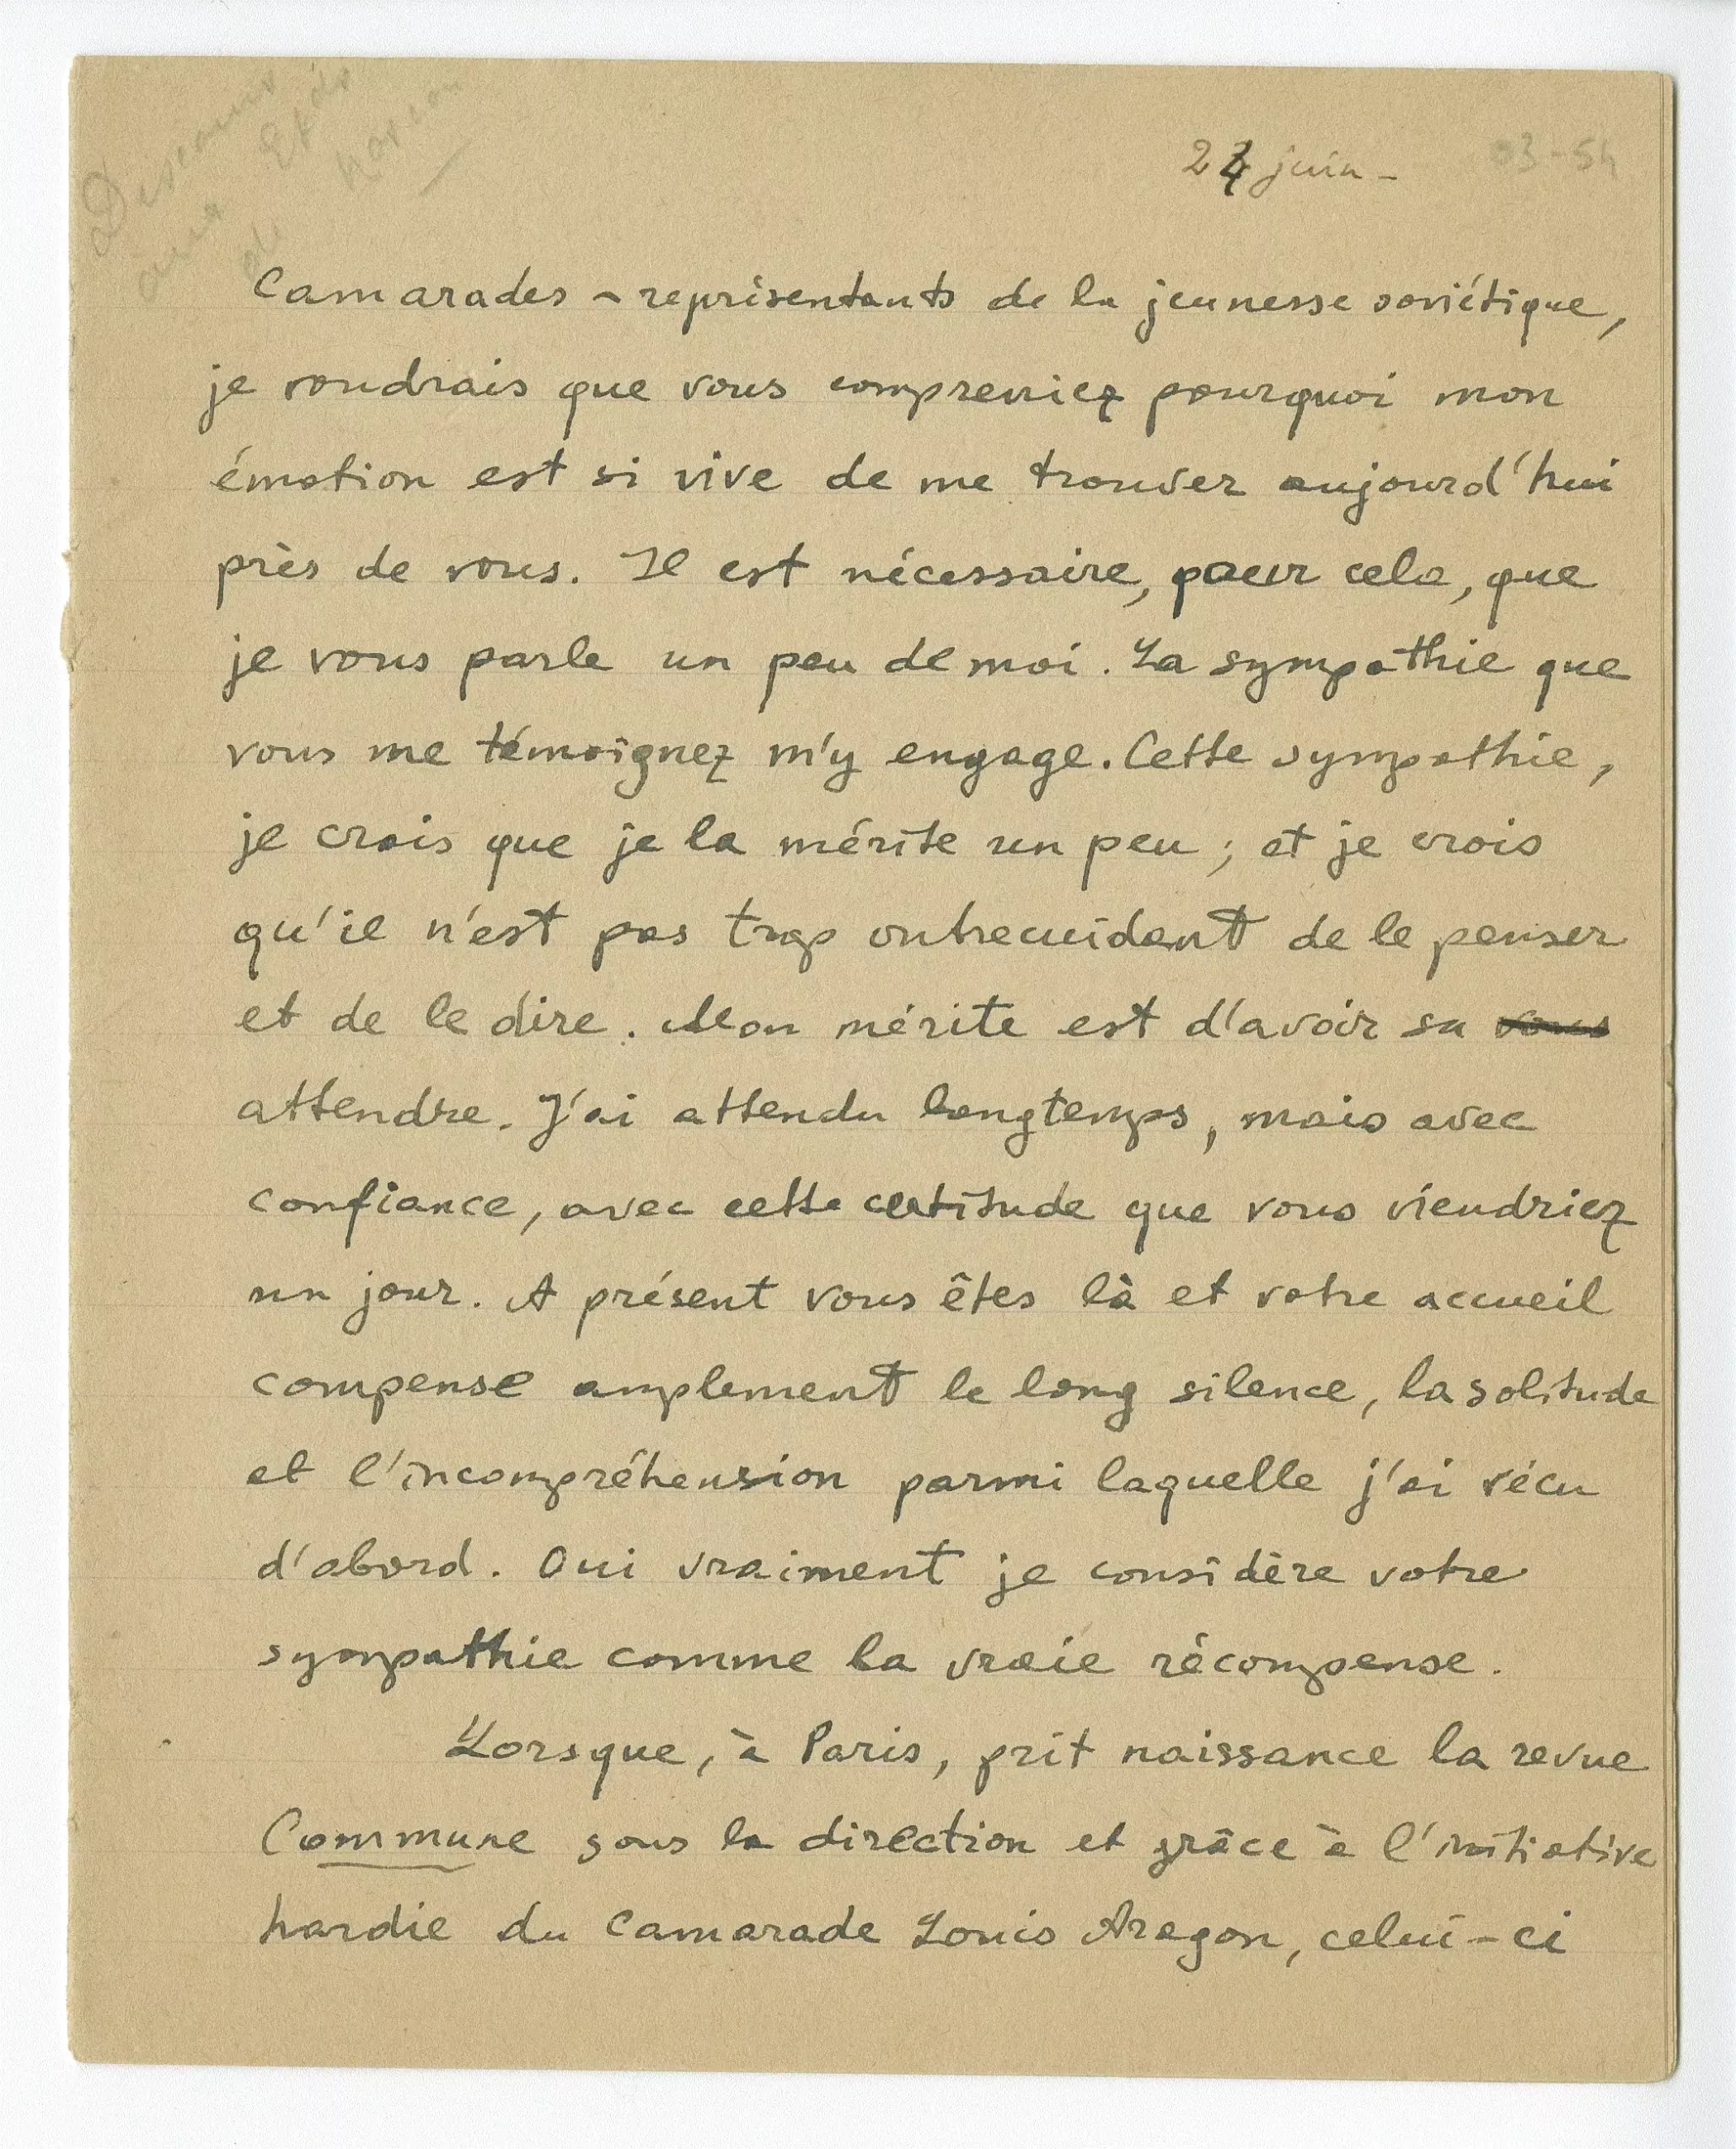 Discours
aux Etds
de Moscou
27 juin -
03-54
Camarades - représentants de la jeunesse soviétique,
je voudrais que vous compreniez pourquoi mon
émotion est si vive de me trouver aujourd'hui
près de vous. Il est nécessaire, pour cela, que
je vous parle un peu de moi. La sympathie que
vous me témoignez m'y engage. Cette sympathie,
je crois que je la mérite un peu ; et je crois
qu'il n'est pas trop outrecuidant de le penser
et de le dire. Mon mérite est d'avoir su vous
attendre. J'ai attendu longtemps, mais avec
confiance, avec cette certitude que vous viendriez
un jour. A présent vous êtes là et votre accueil
compense amplement le long silence, la solitude
et l'incompréhension parmi laquelle j'ai vécu
d'abord. Oui vraiment je considère votre
sympathie comme la vraie récompense.
Lorsque, à Paris, prit naissance la revue
Commune sous la direction et grâce à l'initiative
hardie du camarade Louis Aragon, celui-ci